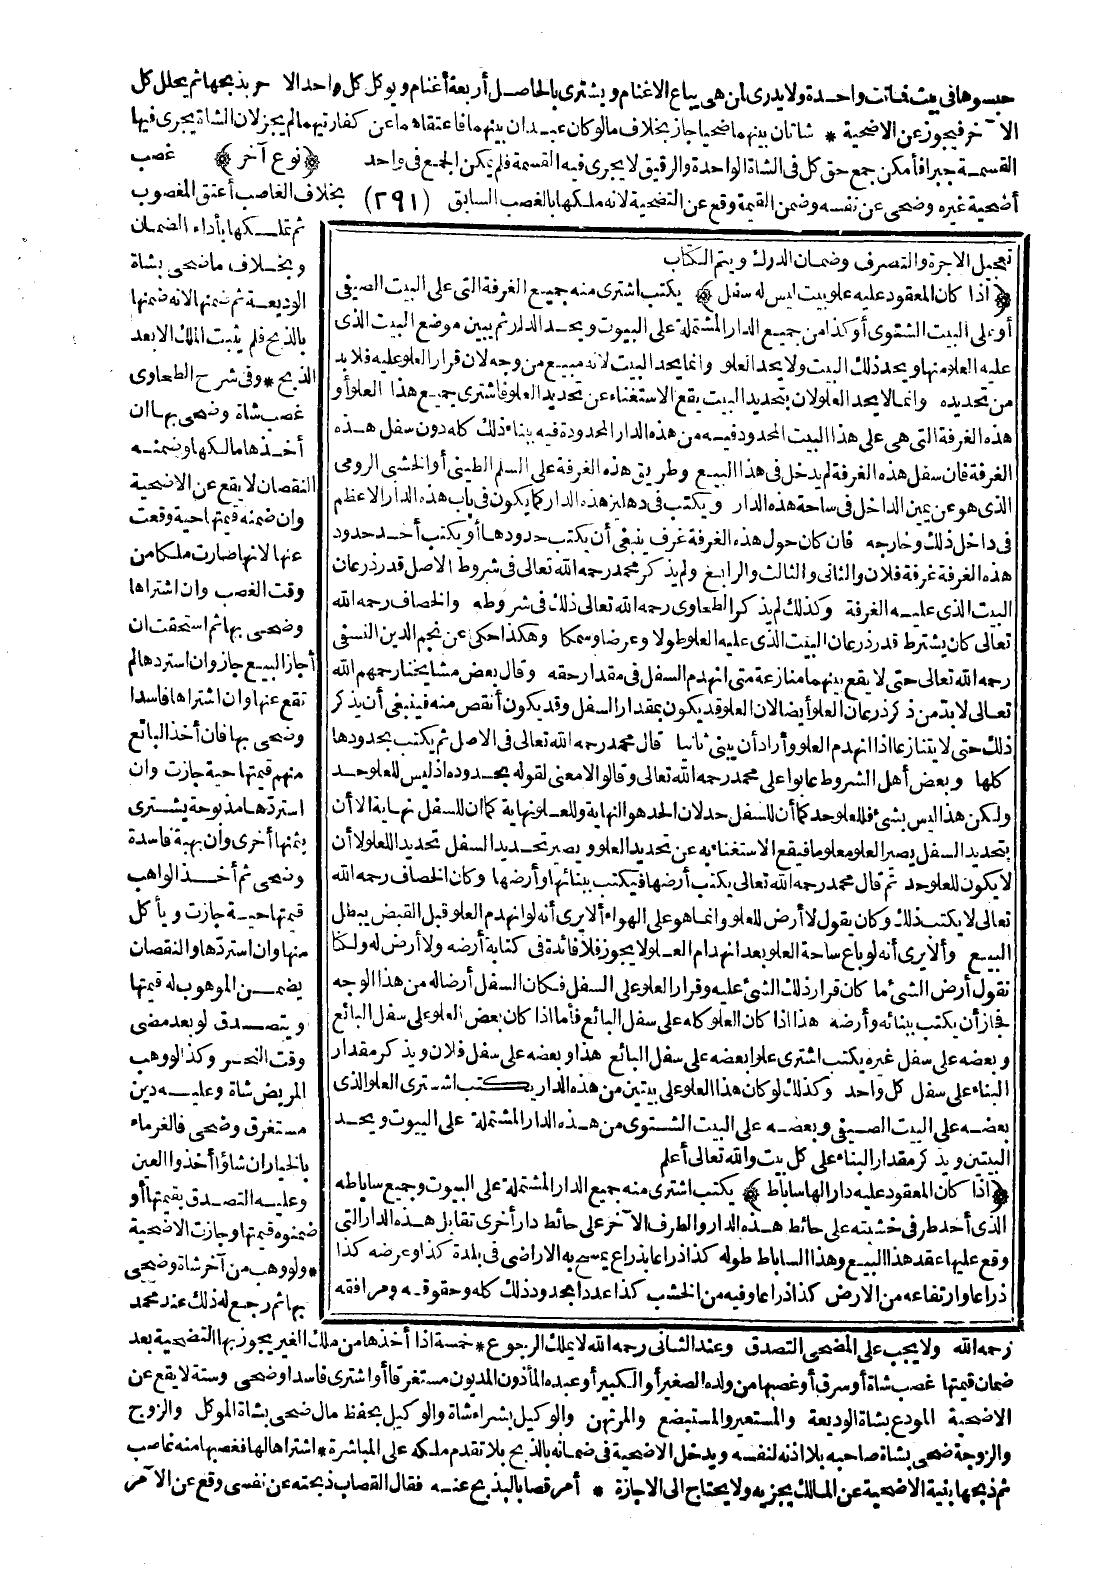 حبسوها فى بيت فماتت واحدة ولا يدرى لمن هى يباع الاغنام و يشترى بالحاصل أربعة أغنام و يوكل كل واحد الآخر بذبحها ثم يحلل كل
الآخر فيجوز عن الاضحية * شاتان بينهما ضحيا جاز بخلاف ما لو كان عبدان بينهما فأعتقاهما عن كفارتيهما لم يجز لان الشاة يجرى فيها
القسمة جبرا فأمكن جمع حق كل فى الشاة الواحدة والرقيق لا يجرى فيه القسمة فلم يمكن الجمع فى واحد ﴿نوع آخر﴾ غصب
أضحية غيره وضحى عن نفسه وضمن القيمة وقع عن التضحية لانه ملكها بالغصب السابق (٢٩١) بخلاف الغاصب أعتق المغصوب
ثم تملكها بأداء الضمان
و بخلاف ما ضحى بشاة
الوديعة ثم ضمنها لانه ضمنها
بالذبح فلم يثبت الملك الا بعد
الذبح * وفى شرح الطحاوى
غصب شاة وضحى بها ان
أخذها مالكها وضمنه
النقصان لا يقع عن الاضحية
وان ضمنه قيمتها حية وقعت
عنها لانها صارت ملكا من
وقت الغصب وان اشتراها
وضحى بها ثم استحقت ان
أجاز البيع جاز وان استردها لم
تقع عنها وان اشتراها فاسدا
وضحى بها فان أخذ البائع
منهم قيمتها حية جازت وان
استردها مذبوحة يشترى
بثمنها أخرى وان بهبة فاسدة
وضحى ثم أخذ الواهب
قيمتها حية جازت و يأكل
منها وان استردها والنقصان
يضمن الموهوب له قيمتها
و يتصدق لو بعد مضى
وقت النحر وكذا لو وهب
المريض شاة وعليه دين
مستغرق وضحى فالغرماء
بالخيار ان شاؤا أخذوا العين
وعليه التصدق بقيمتها أو
ضمنوه قيمتها وجازت الاضحية
* ولو وهب من آخر شاة وضحى
بها ثم رجع له ذلك عند محمد
تعجيل الاجرة والتصرف وضمان الدرك و يتم الكتاب
﴿اذا كان المعقود عليه علو بيت ليس له سفل﴾ يكتب اشترى منه جميع الغرفة التى على البيت الصيفى
أو على البيت الشتوى أو كذا من جميع الدار المشتملة على البيوت و يحد الدار ثم يبين موضع البيت الذى
عليه العلو منها و يحد ذلك البيت ولا يحد العلو وانما يحد البيت لانه مبيع من وجه لان قرار العلو عليه فلا بد
من تحديده وانما لا يحد العلو لان بتحديد البيت يقع الاستغناء عن تحديد العلو فاشترى جميع هذا العلو أو
هذه الغرفة التى هى على هذا البيت المحدود فيه من هذه الدار المحدودة فيه بناء ذلك كله دون سفل هذه
الغرفة فان سفل هذه الغرفة لم يدخل فى هذا البيع وطريق هذه الغرفة على السلم الطينى أو الخشبى الرومى
الذى هو عن يمين الداخل فى ساحة هذه الدار و يكتب فى دهليز هذه الدار كما يكون فى باب هذه الدار الاعظم
فى داخل ذلك وخارجه فان كان حول هذه الغرفة غرف ينبغى أن يكتب حدودها أو يكتب أحد حدود
هذه الغرفة غرفة فلان والثانى والثالث والرابع ولم يذكر محمد رحمه الله تعالى فى شروط الاصل قدر ذرعان
البيت الذى عليه الغرفة وكذلك لم يذكر الطحاوى رحمه الله تعالى ذلك فى شروطه والخصاف رحمه الله
تعالى كان يشترط قدر ذرعان البيت الذى عليه العلو طولا وعرضا وسمكا وهكذا حكى عن نجم الدين النسفى
رحمه الله تعالى حتى لا يقع بينهما منازعة متى انهدم السفل فى مقدار حقه وقال بعض مشايخنا رحمهم الله
تعالى لا بد من ذكر ذرعان العلو أيضا لان العلو قد يكون بمقدار السفل وقد يكون أنقص منه فينبغى أن يذكر
ذلك حتى لا يتنازعا اذا انهدم العلو وأراد أن يبنى ثانيا قال محمد رحمه الله تعالى فى الاصل ثم يكتب بحدودها
كلها و بعض أهل الشروط عابوا على محمد رحمه الله تعالى وقالوا لا معنى لقوله بحدوده اذ ليس للعلو حد
ولكن هذا ليس بشئ فللعلو حد كما أن للسفل حد لان الحد هو النهاية وللعلو نهاية كما ان للسفل نهاية الا أن
بتحديد السفل يصير العلو معلوما فيقع الاستغناء به عن تحديد العلو و يصير تحديد السفل تحديد العلو لا أن
لا يكون للعلو حد ثم قال محمد رحمه الله تعالى يكتب أرضها فيكتب ببنائها وأرضها وكان الخصاف رحمه الله
تعالى لا يكتب ذلك وكان يقول لا أرض للعلو وانما هو على الهواء ألا يرى أنه لو انهدم العلو قبل القبض يبطل
البيع وألا يرى أنه لو باع ساحة العلو بعد انهدام العلو لا يجوز فلا فائدة فى كتابة أرضه ولا أرض له ولكنا
نقول أرض الشئ ما كان قرار ذلك الشئ عليه وقرار العلو على السفل فكان السفل أرضا له من هذا الوجه
فجاز أن يكتب ببنائه وأرضه هذا اذا كان العلو كله على سفل البائع فأما اذا كان بعض العلو على سفل البائع
و بعضه على سفل غيره يكتب اشترى علوا بعضه على سفل البائع هذا و بعضه على سفل فلان و يذكر مقدار
البناء على سفل كل واحد وكذلك لو كان هذا العلو على بيتين من هذه الدار يكتب اشترى العلو الذى
بعضه على البيت الصيفى و بعضه على البيت الشتوى من هذه الدار المشتملة على البيوت و يحد
البيتين و يذكر مقدار البناء على كل بيت والله تعالى أعلم
﴿اذا كان المعقود عليه دار الها ساباط﴾ يكتب اشترى منه جميع الدار المشتملة على البيوت وجميع ساباطه
الذى أحد طرفى خشبته على حائط هذه الدار والطرف الآخر على حائط دار أخرى تقابل هذه الدار التى
وقع عليها عقد هذا البيع وهذا الساباط طوله كذا ذراعا بذراع يمسح به الاراضى فى بلدة كذا وعرضه كذا
ذراعا وارتفاعه من الارض كذا ذراعا وفيه من الخشب كذا عددا بحدود ذلك كله وحقوقه ومرافقه
رحمه الله ولا يجب على المضحى التصدق وعند الثانى رحمه الله لا يملك الرجوع * خمسة اذا أخذها من ملك الغير يجوز بها التضحية بعد
ضمان قيمتها غصب شاة أو سرق أو غصبها من ولده الصغير أو الكبير أو عبده المأذون المديون مستغرقا أو اشترى فاسدا وضحى وستة لا يقع عن
الاضحية المودع بشاة الوديعة والمستعير والمستبضع والمرتهن والوكيل بشراء شاة والوكيل بحفظ مال ضحى بشاة الموكل والزوج
والزوجة ضحى بشاة صاحبه بلا اذنه لنفسه و يدخل الاضحية فى ضمانه بالذبح بلا تقدم ملكه على المباشرة * اشتراها لها فغصبها منه غاصب
ثم ذبحها بنية الاضحية عن المالك يجزيه ولا يحتاج الى الاجازة * أمر قصابا ليذبح عنه فقال القصاب ذبحته عن نفسى وقع عن الآمر